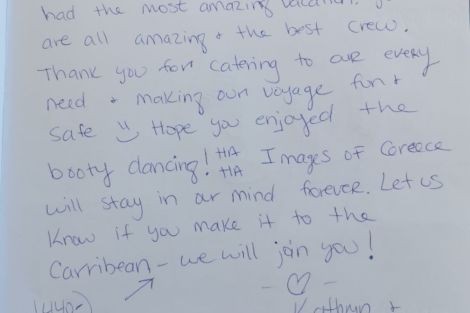 had the most amazing vacation.
are all amazing + the best crew.
Thank you for catering to our every
need + making our voyage fun +
safe :) Hope you enjoyed the
booty dancing! HA HA Images of Greece
will stay in our mind forever. Let us
know if you make it to the
Carribean - we will join you!
- ♡ -
Kathryn +